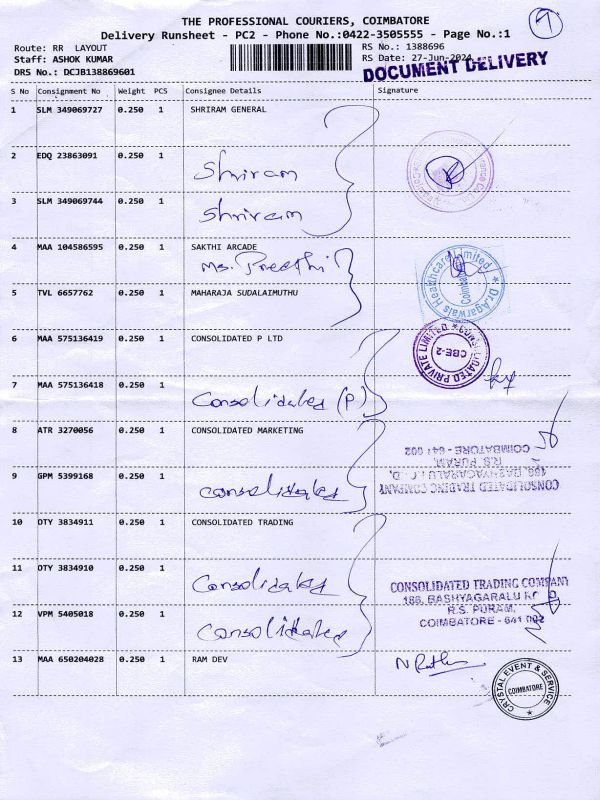 1
THE PROFESSIONAL COURIERS, COIMBATORE
Delivery Runsheet - PC2 - Phone No.:0422-3505555 - Page No.:1
Route: RR LAYOUT
RS No.: 1388696
Staff: ASHOK KUMAR
RS Date: 27-Jun-2024
DRS No.: DCJB138869601
DOCUMENT DELIVERY
S No Consignment No Weight PCS Consignee Details Signature
1 SLM 349069727 0.250 1 SHRIRAM GENERAL
2 EDQ 23863091 0.250 1
Shriram
3 SLM 349069744 0.250 1
Shriram
4 MAA 104586595 0.250 1 SAKTHI ARCADE
Ms. Preethi
Dr.Agarwals Healthcare Limited
Coimbatore
5 TVL 6657762 0.250 1 MAHARAJA SUDALAIMUTHU
6 MAA 575136419 0.250 1 CONSOLIDATED P LTD
CONSOLIDATED PRIVATE LIMITED
CBE-2
7 MAA 575136418 0.250 1
Consolidated (P)
8 ATR 3270056 0.250 1 CONSOLIDATED MARKETING
9 GPM 5399168 0.250 1
consolidated
CONSOLIDATED TRADING COMPANY
R.S. PURAM,
COIMBATORE - 641 002
10 OTY 3834911 0.250 1 CONSOLIDATED TRADING
11 OTY 3834910 0.250 1
Consolidated
CONSOLIDATED TRADING COMPANY
166, BASHYAGARALU
R.S. PURAM,
COIMBATORE - 641 002
12 VPM 5405018 0.250 1
Consolidated
13 MAA 650204028 0.250 1 RAM DEV
CRYSTAL EVENT & SERVICE
COIMBATORE